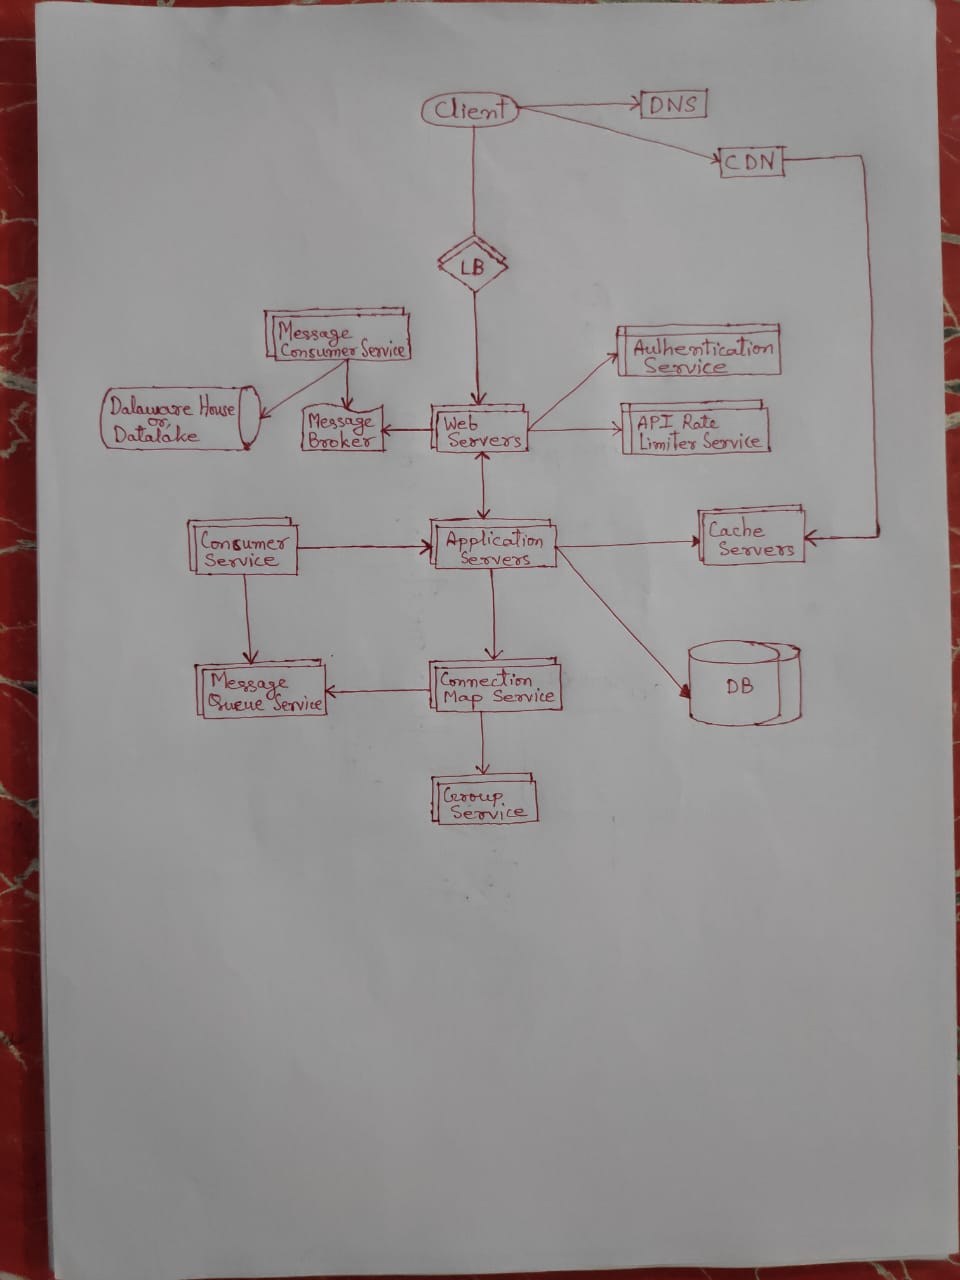 Client
DNS
CDN
LB
Message
Consumer Service
Authentication
Service
Dalaware House
or
Datalake
Message
Broker
Web
Servers
API Rate
Limiter Service
Consumer
Service
Application
Servers
Cache
Servers
Message
Queue Service
Connection
Map Service
DB
Group
Service